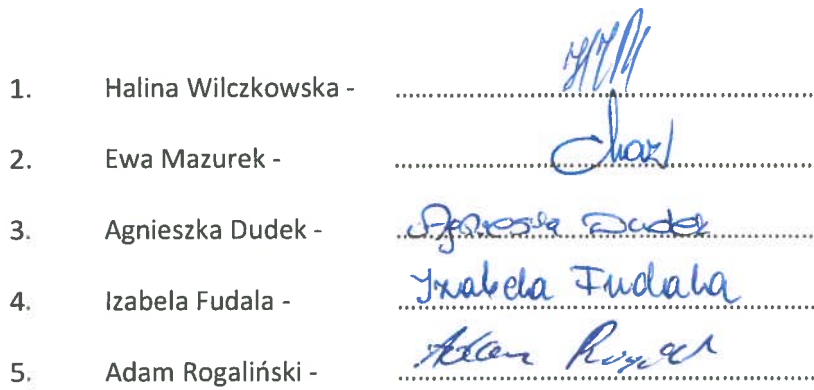 1. Halina Wilczkowska - ..........
2. Ewa Mazurek - ..........
3. Agnieszka Dudek - Agnieszka Dudek
4. Izabela Fudala - Izabela Fudala
5. Adam Rogaliński - Adam